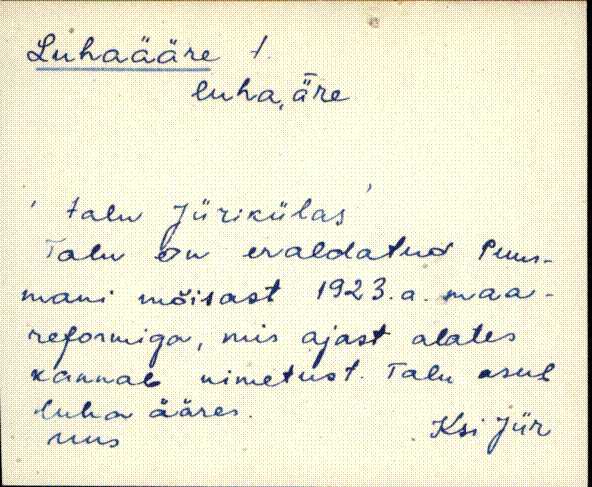 Luhaääre t.
luha,äre
' talu Jürikülas '
Talu on eraldatud Puur-
mani mõisast 1923.a. maa-
reformiga, mis ajast alates
kannab nimetust. Talu asub
luha ääres.
uus
Ksi Jür